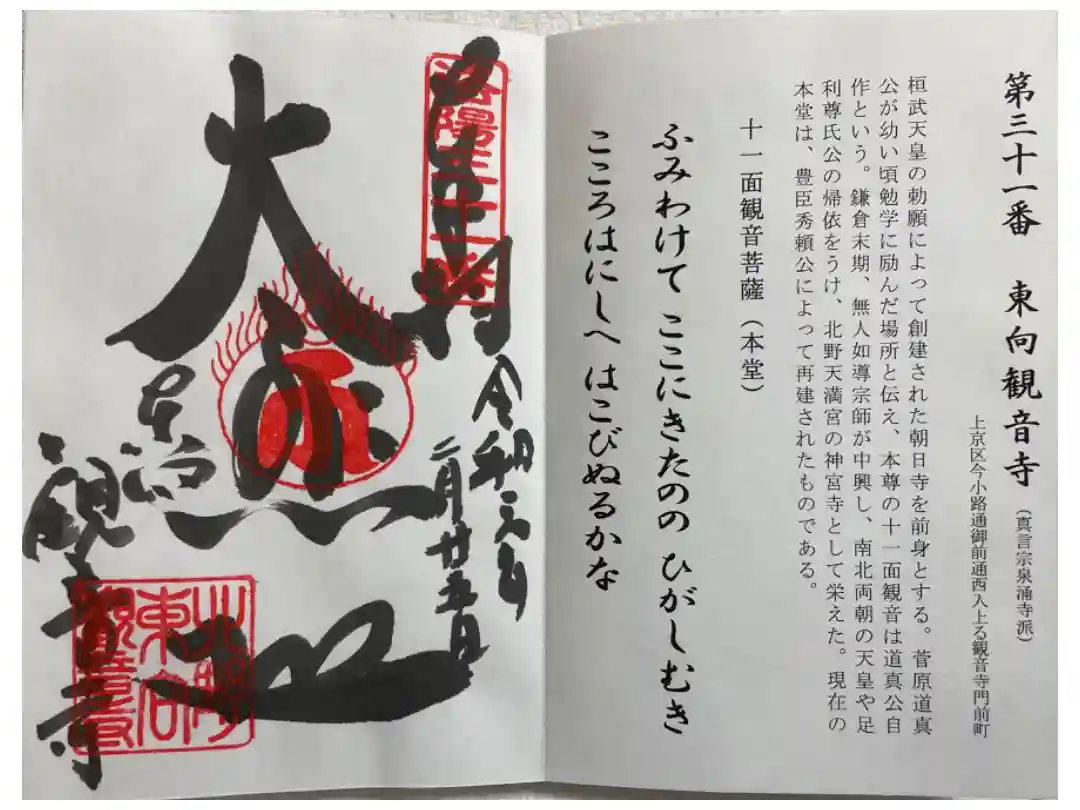 第三十一番　東向観音寺（真言宗泉涌寺派）
上京区今小路通御前通西入上る観音寺門前町
桓武天皇の勅願によって創建された朝日寺を前身とする。菅原道真
公が幼い頃勉学に励んだ場所と伝え、本尊の十一面観音は道真公自
作という。鎌倉末期、無人如導宗師が中興し、南北両朝の天皇や足
利尊氏公の帰依をうけ、北野天満宮の神宮寺として栄えた。現在の
本堂は、豊臣秀頼公によって再建されたものである。
十一面観音菩薩（本堂）
ふみわけて ここにきたのの ひがしむき
こころはにしへ はこびぬるかな
洛陽三十一番
令和六年
二月廿五日
大
観音寺
北野
東向
観音寺